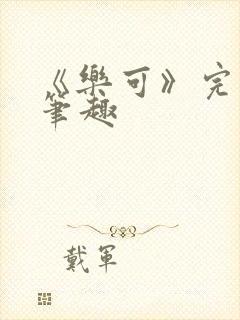 《樂可》完
筆趣
戴軍